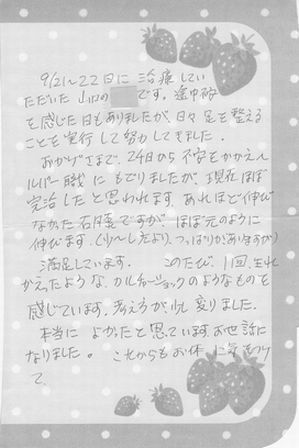 9/21〜22日に 治療してい
ただいた 山口の です。途中
を感じた日もありましたが、日々足を整える
ことを実行して努力してきました。
おかげさまで、24日から不安をかかえヘ
ルパー職に もどりましたが、現在ほぼ
完治したと思われます。あれほど伸び
なかった右膝ですが、ほぼ元のように
伸びます。(少〜し左より、つっぱりがありますが)
満足しています。 このたび、1回生れ
かえったような、カルチャーショックのようなものを
感じています。考え方が少し変りました。
本当に よかったと思っています。お世話に
なりました。 これからもお体 に気をつけ
て、